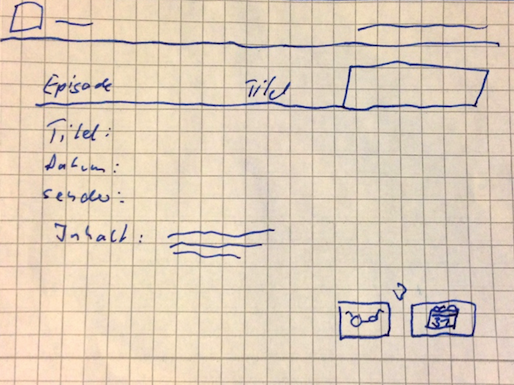 Episode Titel
Titel:
Datum:
Sender:
Inhalt: